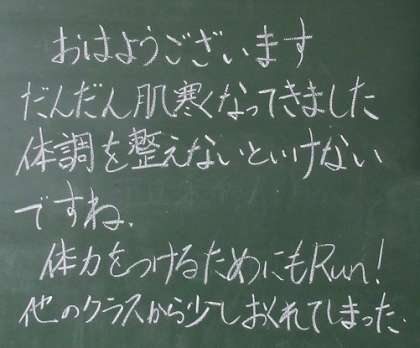 おはようございます
だんだん肌寒くなってきました
体調を整えないといけない
ですね.
体力をつけるためにもRun!
他のクラスから少しおくれてしまった.